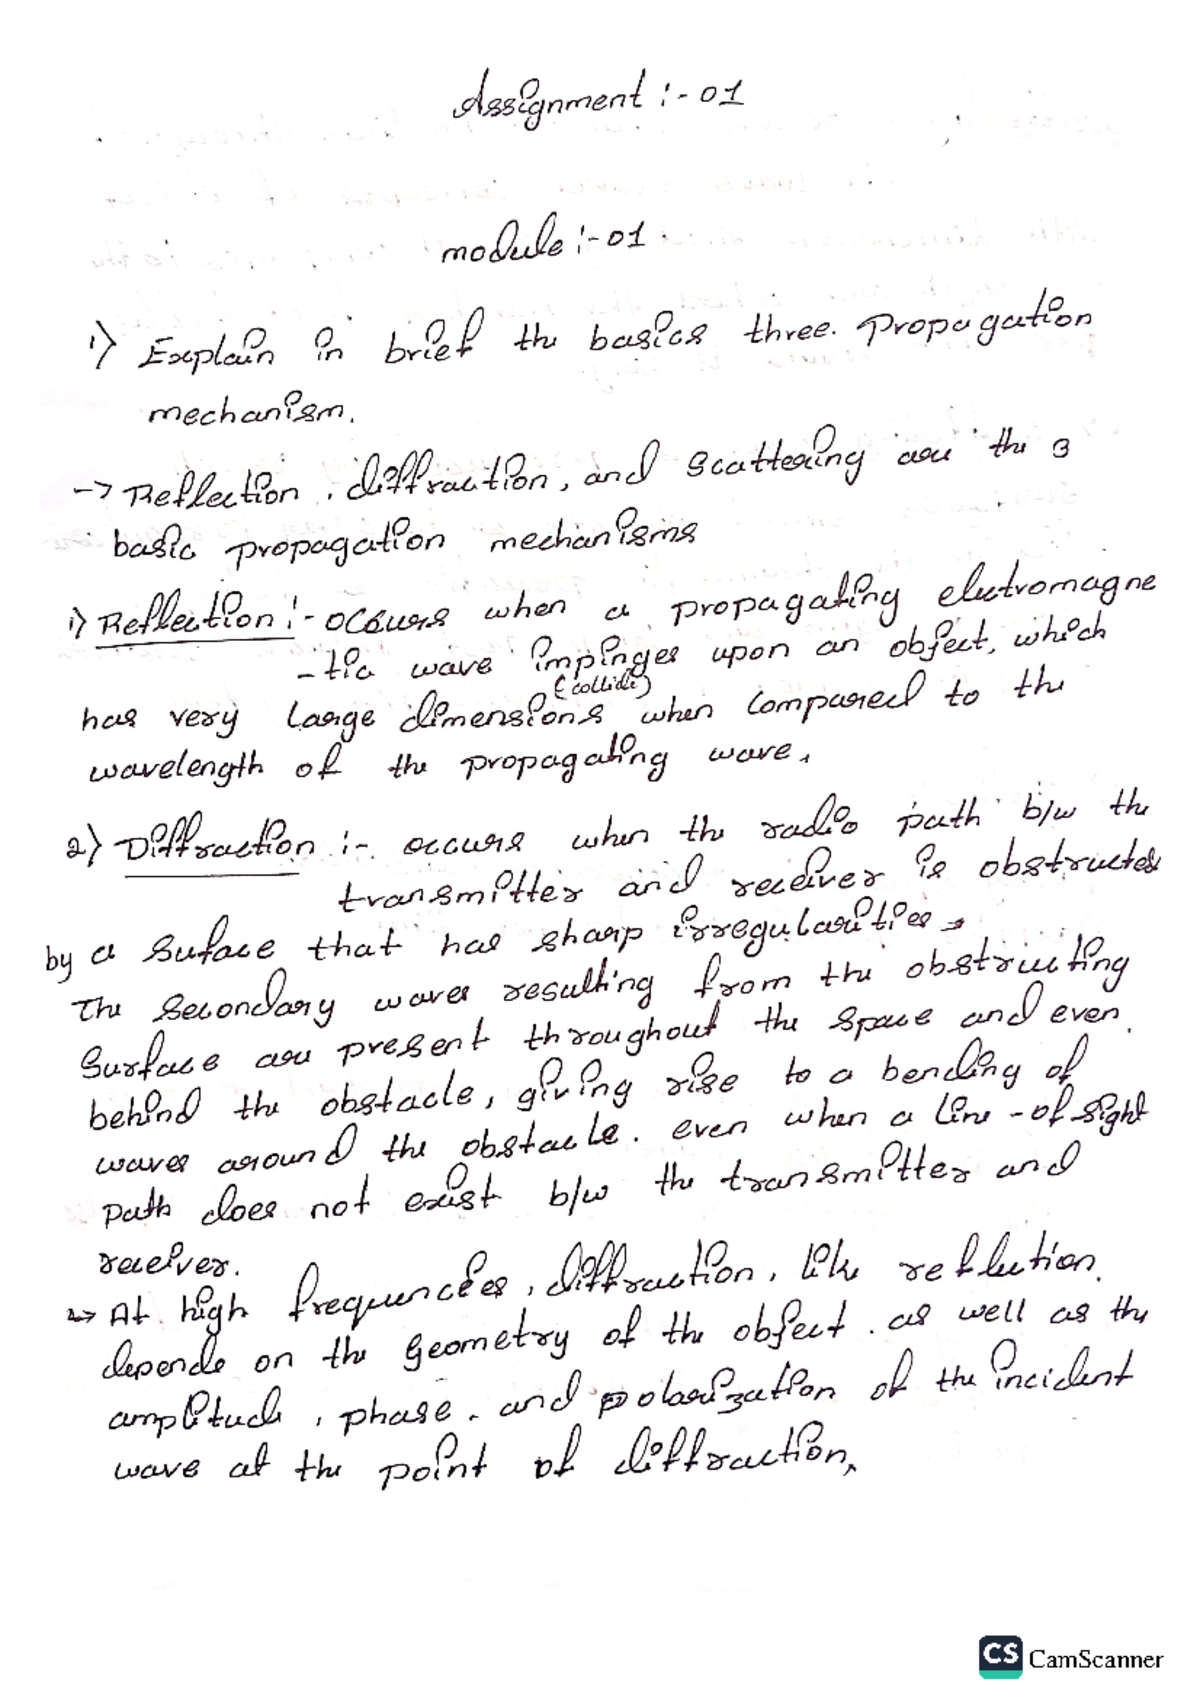 Assignment :- 01
module :- 01.
1) Explain in brief the basics three. Propagation
mechanism.
-> Reflection, diffraction, and Scattering are the 3
basic propagation mechanisms
1) Reflection :- occurs when a propagating electromagne
-tic wave impinges upon an object, which
(collide)
has very large dimensions when compared to the
wavelength of the propagating wave.
2) Diffraction :- occurs when the radio path b/w the
transmitter and receiver is obstructed
by a Suface that has sharp irregularities.
The Secondary waves resulting from the obstructing
Surface are present throughout the space and even
behind the obstacle, giving rise to a bending of
waves around the obstacle. even when a line-of-sight
path does not exist b/w the transmitter and
receiver.
-> At high frequencies, diffraction, like reflection.
depends on the geometry of the object. as well as the
amplitude, phase. and polarization of the incident
wave at the point of diffraction.
CS CamScanner